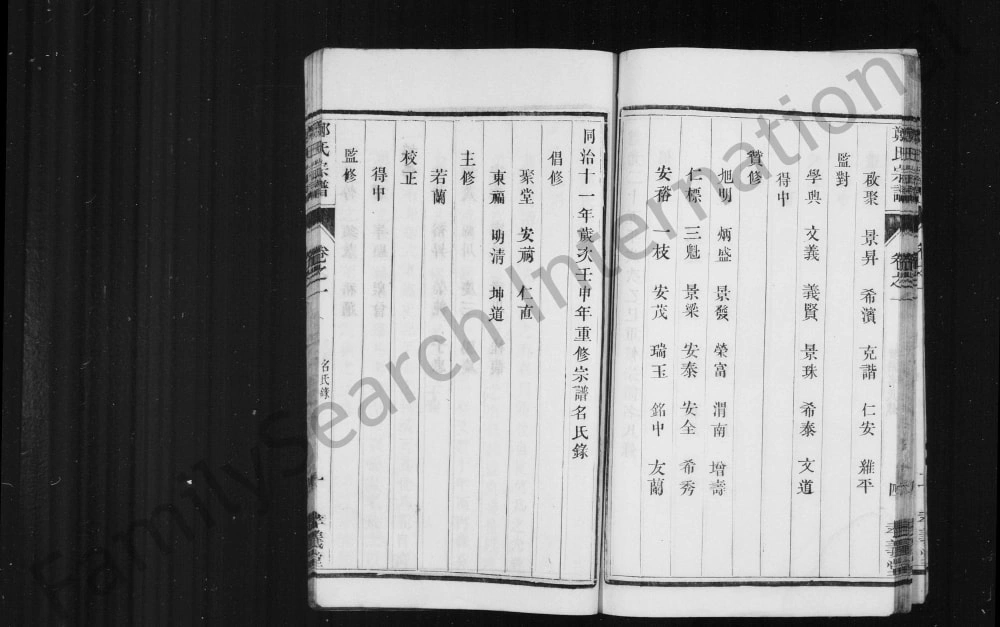 鄭氏宗譜
啟聚 景昇 希濱 克諧 仁安 維平
監對
學典 文義 義賢 景珠 希泰 文道
得中
贊修
旭明 炳盛 景發 榮富 渭南 增壽
仁標 三魁 景梁 安泰 安全 希秀
安裕 一枝 安茂 瑞玉 銘中 友蘭
同治十一年歲次壬申年重修宗譜名氏錄
倡修
聚堂 安満 仁直
東福 明清 坤道
主修
若蘭
校正
得中
監修
鄭氏宗譜
卷之一
名氏錄
孝義堂
FamilySearch International